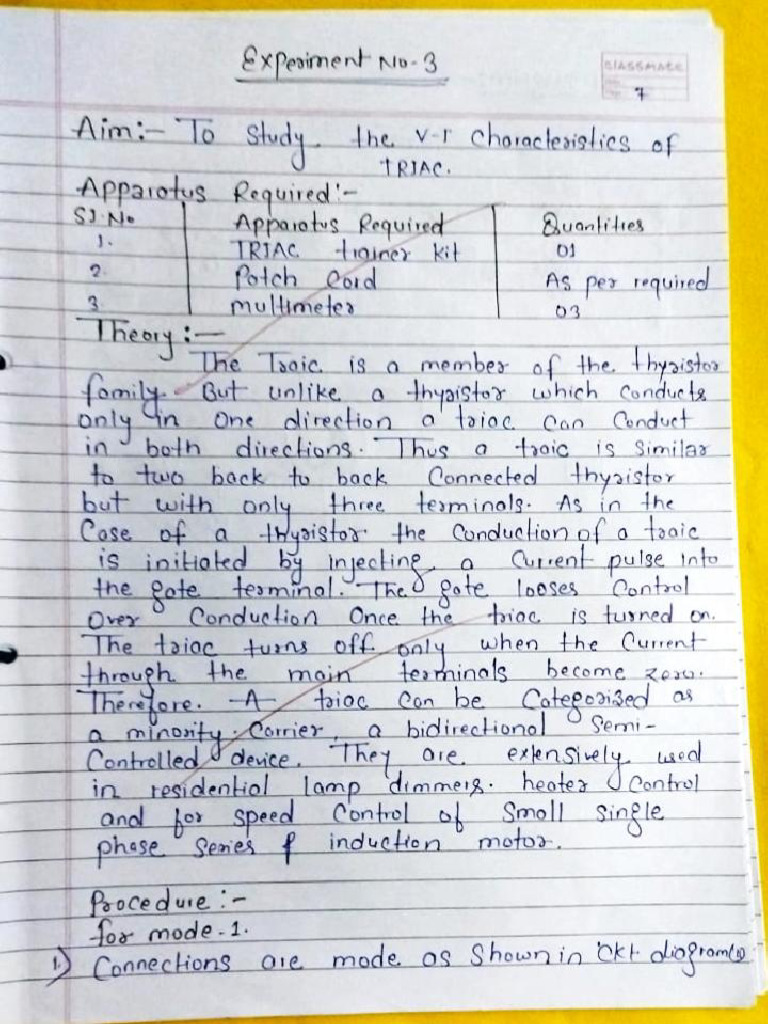 Experiment No-3
CLASSMATE
7
Aim:- To study the V-I Characteristics of
TRIAC.
Apparatus Required:-
Sl.No Apparatus Required Quantities
1. TRIAC trainer kit 01
2. Patch Cord As per required
3. multimeter 03
Theory :-
The Traic is a member of the thyristor
family. But unlike a thyristor which conducts
only in one direction a triac can Conduct
in both directions. Thus a traic is similar
to two back to back Connected thyristor
but with only three terminals. As in the
Case of a thyristor the conduction of a traic
is initiated by injecting a Current pulse into
the gate terminal. The gate looses Control
over Conduction Once the triac is turned on.
The triac turns off only when the Current
through the main terminals become zero.
Therefore. A triac can be Categorised as
a minority carrier, a bidirectional semi-
Controlled device. They are extensively used
in residential lamp dimmers. heater Control
and for speed Control of small single
phase series & induction motor.
Procedure :-
for mode-1.
1) Connections are made as shown in ckt diagram(1)